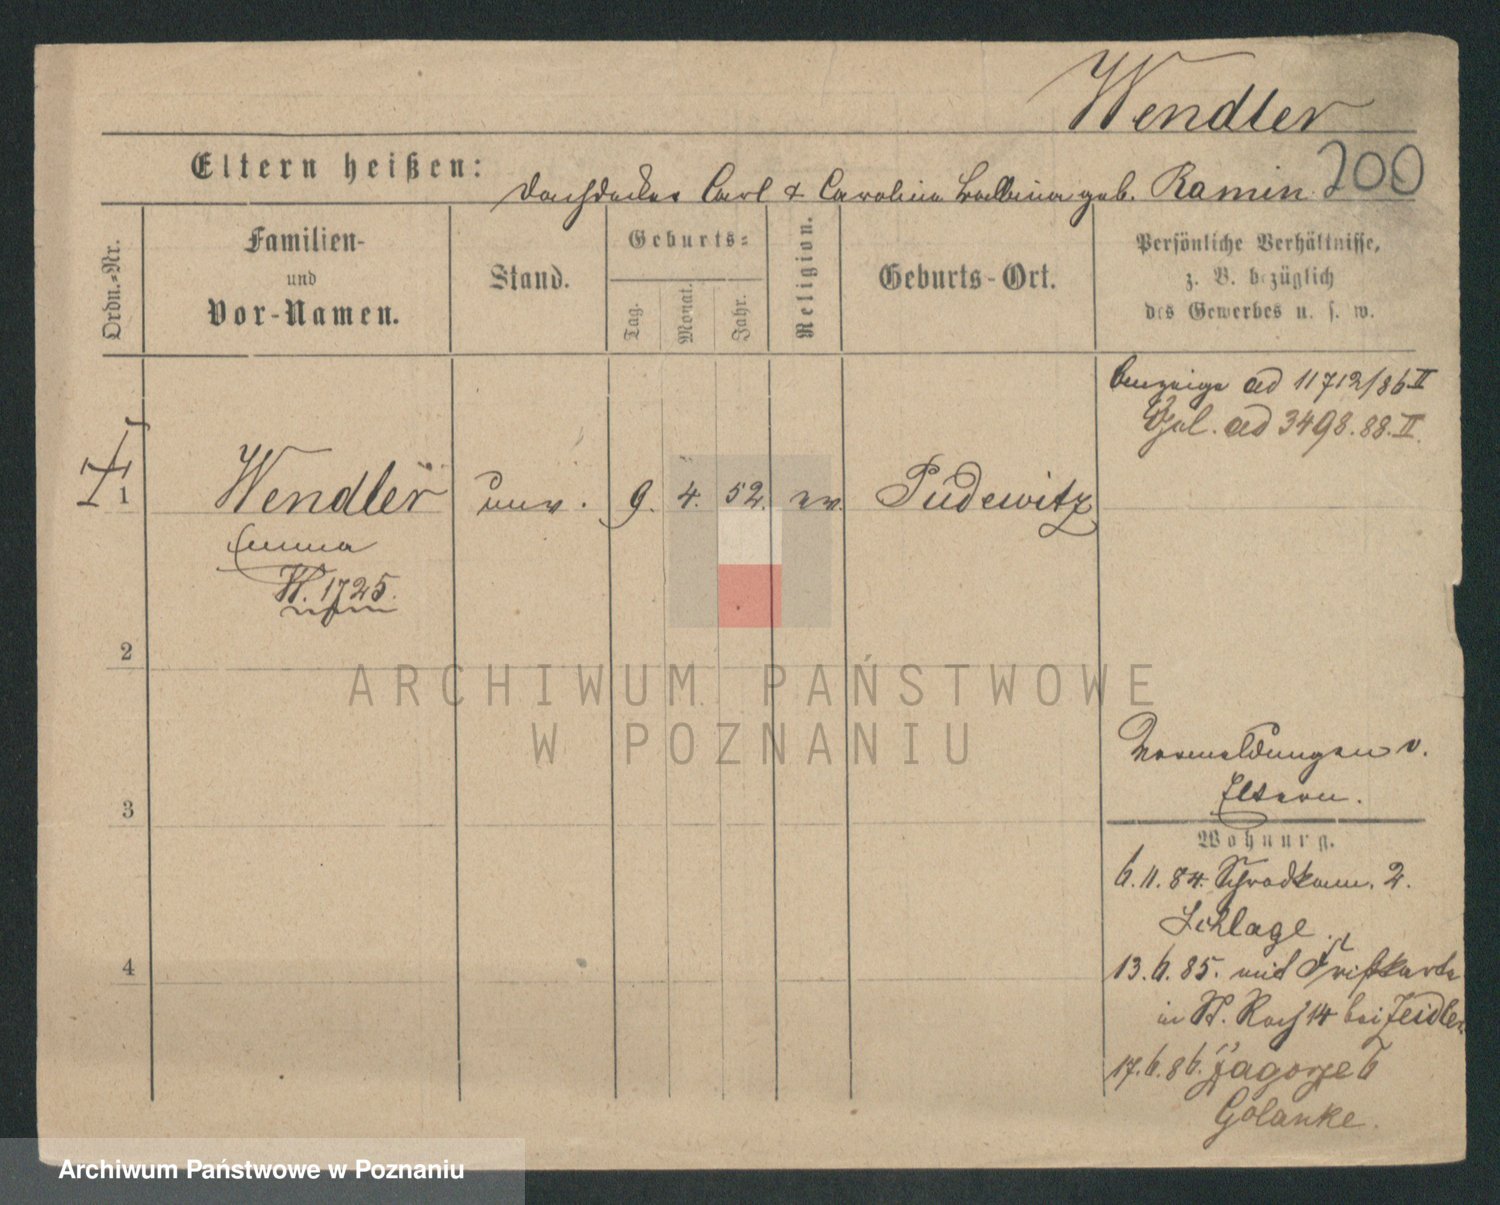 Wendler
200
Eltern heißen: Dachdecker Carl & Carolina Balbina geb. Ramin
Ordn.-Nr.
Familien-
und
Vor-Namen.
Stand.
Geburts-
Tag.
Monat.
Jahr.
Religion.
Geburts-Ort.
Persönliche Verhältnisse,
z. B. bezüglich
des Gewerbes u. s. w.
ad 11712/86 II
ad 3498.88.II.
1 Wendler unv. 9. 4. 52. ev. Pudewitz
Emma
K. 1725.
2
3
4
ARCHIWUM PAŃSTWOWE
W POZNANIU
v.
Eltern.
Wohnung.
6.11.84. 2.
Schlage
13.6.85. mit
in St. Roch 14 bei Zeidler
17.6.86. Zagorze 6
Golanke.
Archiwum Państwowe w Poznaniu